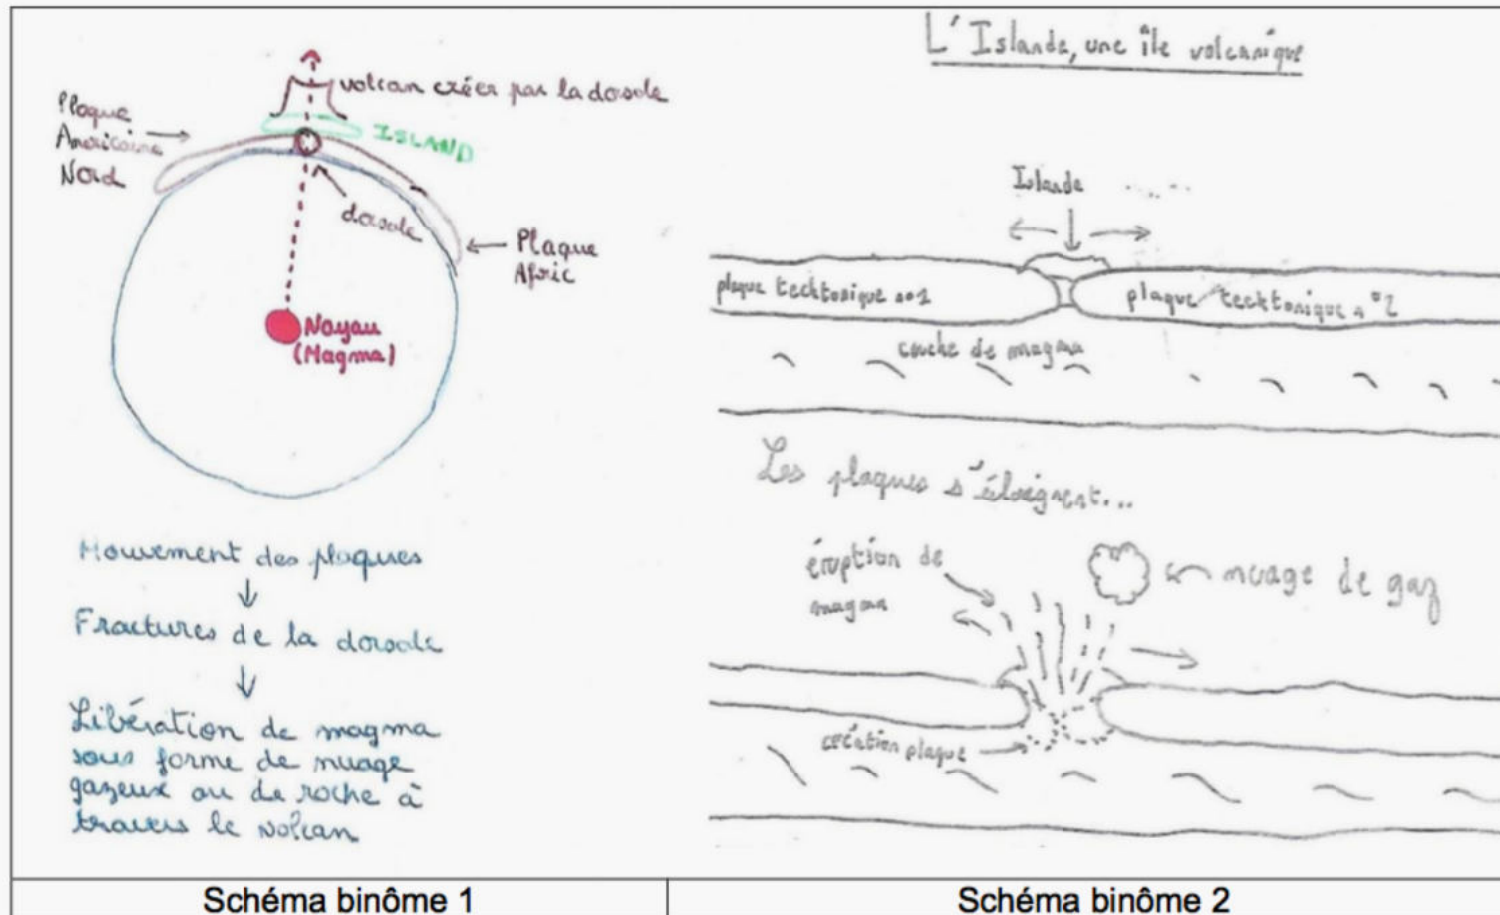 volcan créer par la dorsale
Plaque
Américaine
Nord
ISLAND
dorsale
Plaque
Afric
Noyau
(Magma)
Mouvement des plaques
Fractures de la dorsale
Libération de magma
sous forme de nuage
gazeux ou de roche à
travers le volcan
Schéma binôme 1
L'Islande, une île volcanique
Islande
plaque tecktonique n°1
plaque tecktonique n°2
couche de magma
Les plaques s'éloignent...
éruption de
magma
nuage de gaz
création plaque
Schéma binôme 2